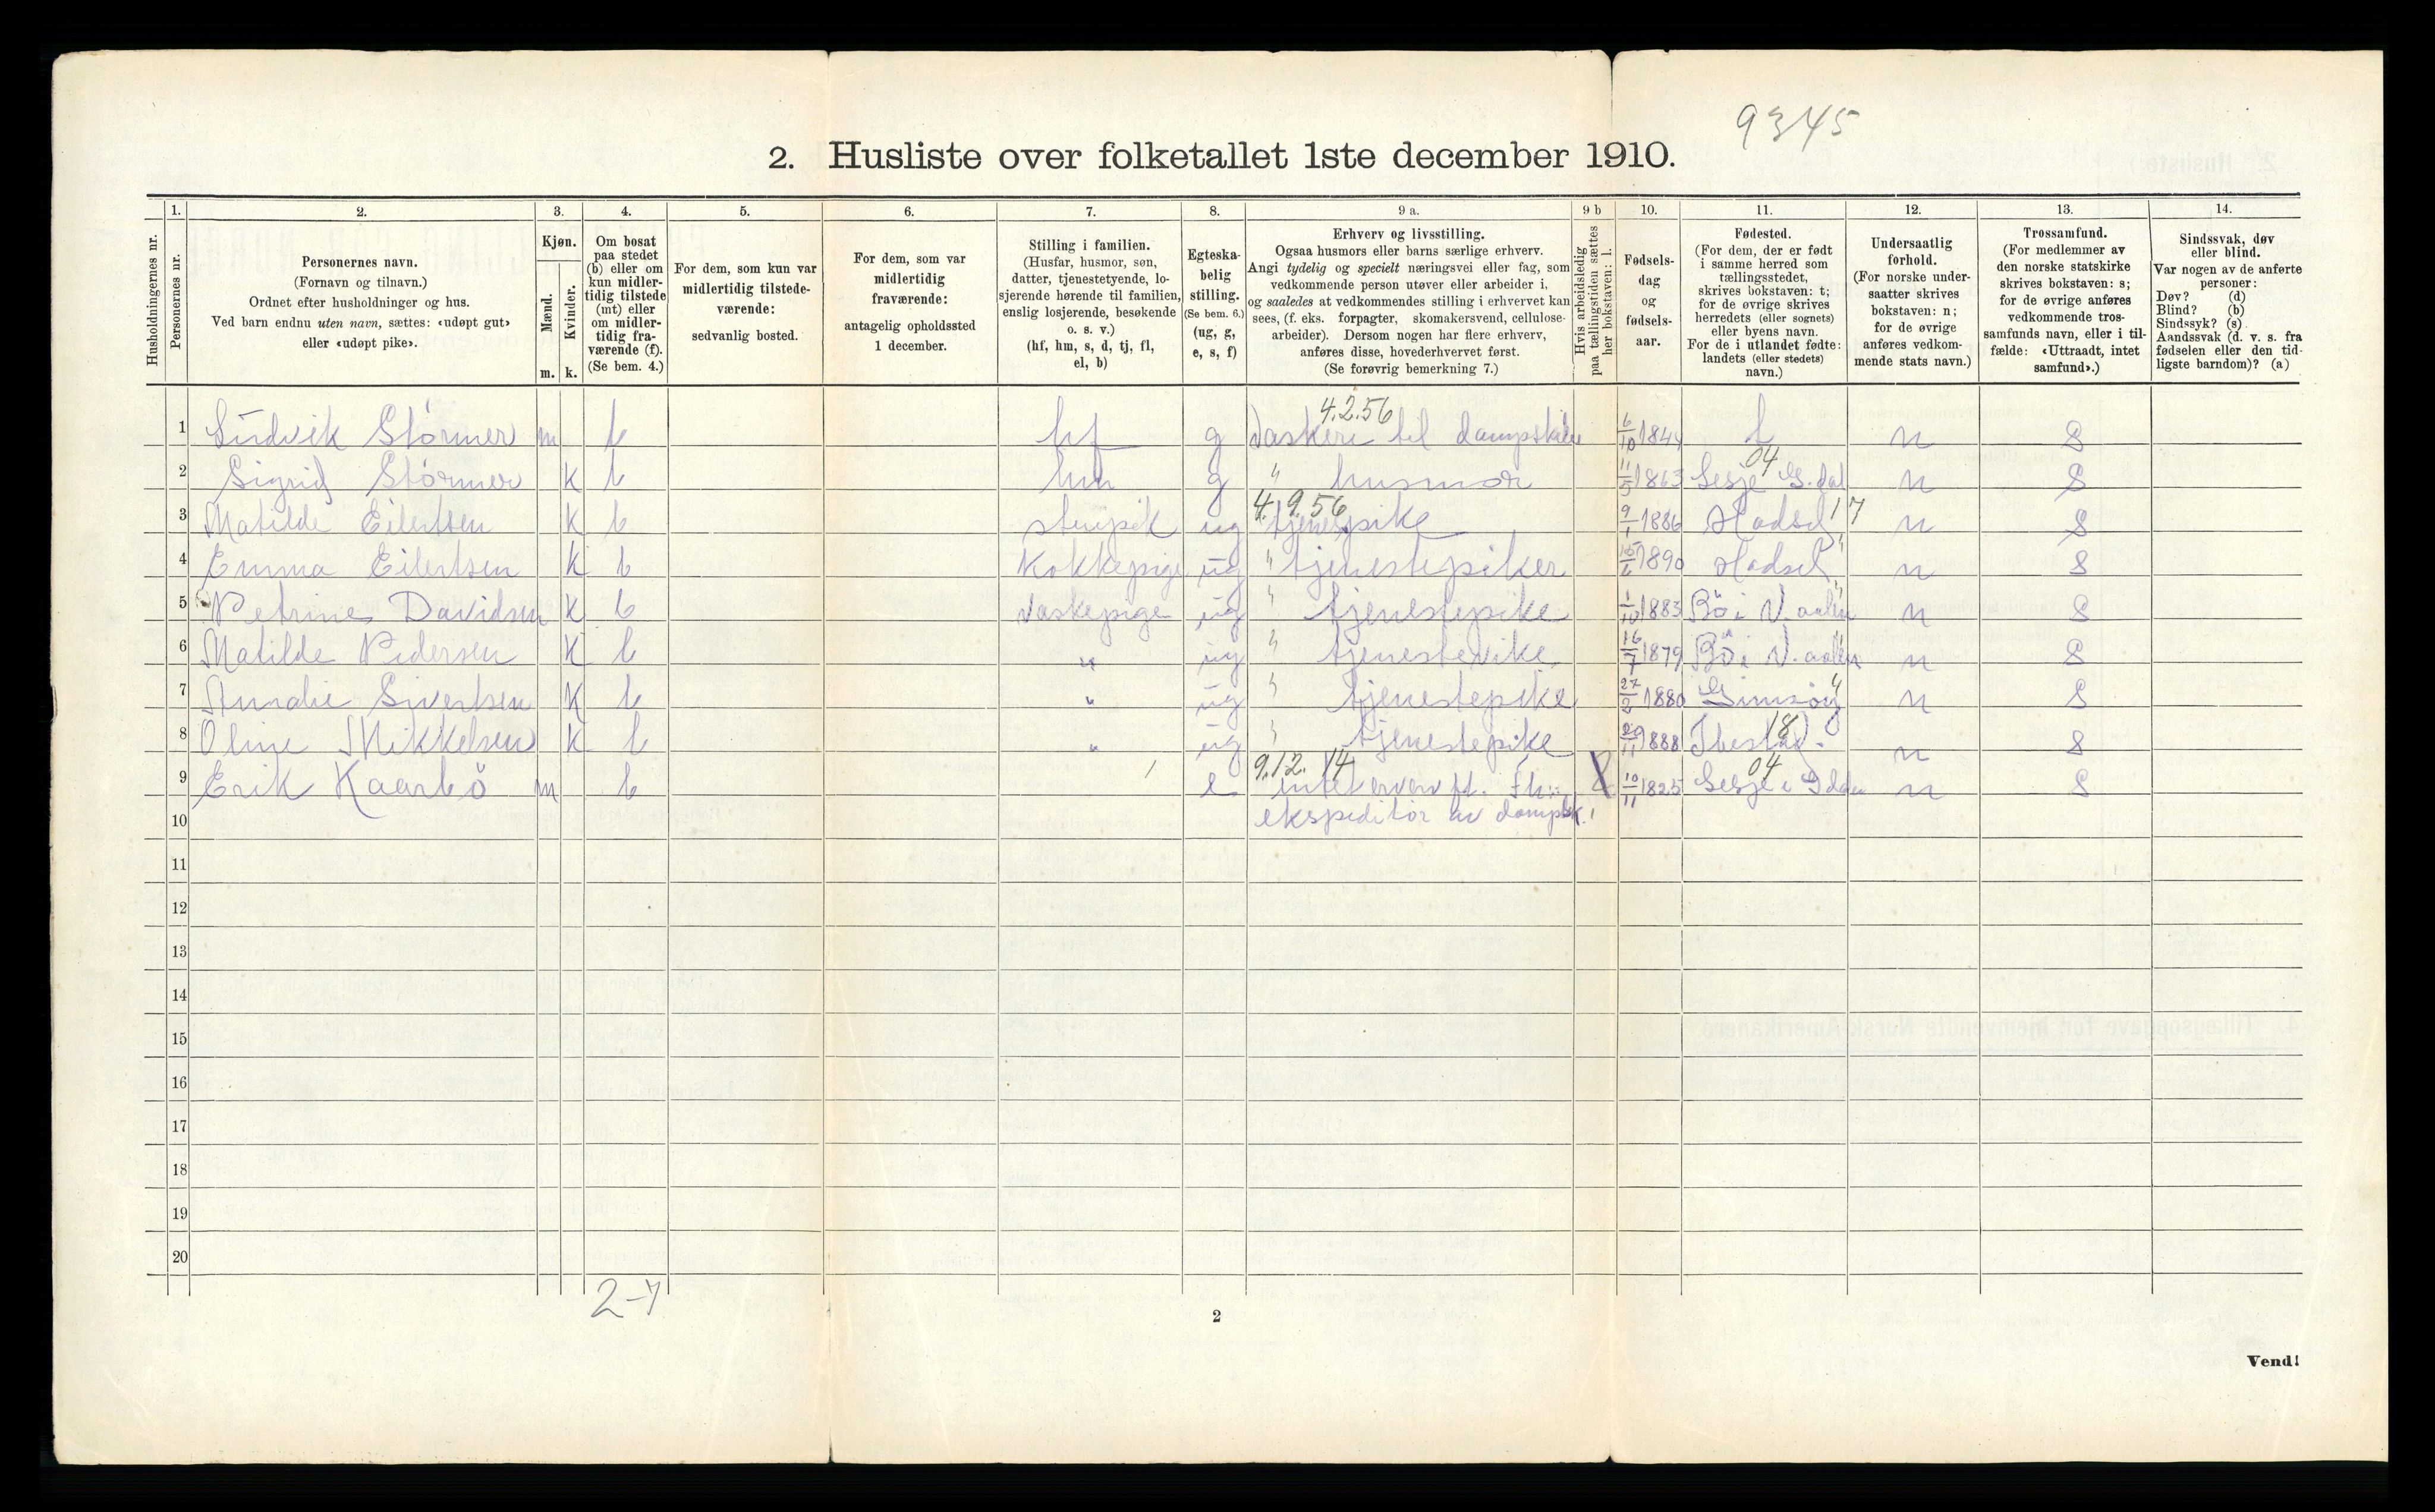 9345
2. Husliste over folketallet 1ste december 1910.
Husholdningernes nr.
1.
Personernes nr.
2.
Personernes navn.
(Fornavn og tilnavn.)
Ordnet efter husholdninger og hus.
Ved barn endnu uten navn, sættes: «udøpt gut»
eller «udøpt pike».
3.
Kjøn.
Mænd.
Kvinder.
m. k.
4.
Om bosat
paa stedet
(b) eller om
kun midler-
tidig tilstede
(mt) eller
om midler-
tidig fra-
værende (f).
(Se bem. 4.)
5.
For dem, som kun var
midlertidig tilstede-
værende:
sedvanlig bosted.
6.
For dem, som var
midlertidig
fraværende:
antagelig opholdssted
1 december.
7.
Stilling i familien.
(Husfar, husmor, søn,
datter, tjenestetyende, lo-
sjerende hørende til familien,
enslig losjerende, besøkende
o. s. v.)
(hf, hm, s, d, tj, fl,
el, b)
8.
Egteska-
belig
stilling.
(Se bem. 6.)
(ug, g,
e, s, f)
9 a.
Erhverv og livsstilling.
Ogsaa husmors eller barns særlige erhverv.
Angi tydelig og specielt næringsvei eller fag, som
vedkommende person utøver eller arbeider i,
og saaledes at vedkommendes stilling i erhvervet kan
sees, (f. eks. forpagter, skomakersvend, cellulose-
arbeider). Dersom nogen har flere erhverv,
anføres disse, hovederhvervet først.
(Se forøvrig bemerkning 7.)
9 b
Hvis arbeidsledig
paa tællingstiden sættes
her bokstaven: l.
10.
Fødsels-
dag
og
fødsels-
aar.
11.
Fødested.
(For dem, der er født
i samme herred som
tællingsstedet,
skrives bokstaven: t;
for de øvrige skrives
herredets (eller sognets)
eller byens navn.
For de i utlandet fødte:
landets (eller stedets)
navn.)
12.
Undersaatlig
forhold.
(For norske under-
saatter skrives
bokstaven: n;
for de øvrige
anføres vedkom-
mende stats navn.)
13.
Trossamfund.
(For medlemmer av
den norske statskirke
skrives bokstaven: s;
for de øvrige anføres
vedkommende tros-
samfunds navn, eller i til-
fælde: «Uttraadt, intet
samfund».)
14.
Sindssvak, døv
eller blind.
Var nogen av de anførte
personer:
Døv? (d)
Blind? (b)
Sindssyk? (s)
Aandssvak (d. v. s. fra
fødselen eller den tid-
ligste barndom)? (a)
4.2.56
1 Ludvik Störmer m b hf g til 6/10 1844 t n S
04
2 Sigrid Störmer k b hm g " husmor 11/5 1863 Lesje G.dal n S
4.9.56
3 Matilde Eilertsen k b ug tjenestpike 9/1 1886 Hadsel 17 n S
4 Emma Eilertsen k b Kokkepige ug " tjenestepiker 1890 Hadsel " n S
5 Petrine Davidsen k b Vaskepige ug " tjenestepike 1/10 1883 Bö i V.aalen n S
6 Matilde Pedersen k b " ug " tjenestepike 16/7 1879 Bö i V.aalen n S
7 Amalie Sivertsen k b " ug " tjenestepike 27/2 1880 Gimsöy " n S
18
8 Oline Mikkelsen k b " ug " tjenestepike 29/11 1888 Ibestad. n S
9.12. 14
04
9 Erik Kaarbö m b e intet erverv 10/11 1825 Lesje i n S
10 ekspeditör av dampsk.
11
12
13
14
15
16
17
18
19
20
2-7
2
Vend!